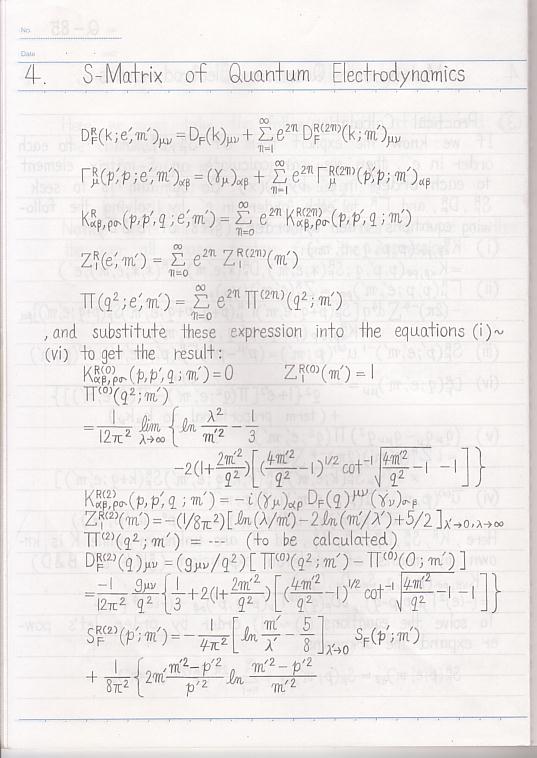 No.
Date
4. S-Matrix of Quantum Electrodynamics
D_F^R(k;e′,m′)_μν = D_F(k)_μν + ∑_{n=1}^∞ e^{2n} D_F^{R(2n)}(k;m′)_μν
Γ_μ^R(p′,p;e′,m′)_αβ = (γ_μ)_αβ + ∑_{n=1}^∞ e^{2n} Γ_μ^{R(2n)}(p′,p;m′)_αβ
K^R_{αβ,ρσ}(p,p′,q;e′,m′) = ∑_{n=0}^∞ e^{2n} K^{R(2n)}_{αβ,ρσ}(p,p′,q;m′)
Z_1^R(e′,m′) = ∑_{n=0}^∞ e^{2n} Z_1^{R(2n)}(m′)
Π(q²;e′,m′) = ∑_{n=0}^∞ e^{2n} Π^{(2n)}(q²;m′)
, and substitute these expression into the equations (i)~
(vi) to get the result:
K^{R(0)}_{αβ,ρσ}(p,p′,q;m′) = 0 Z_1^{R(0)}(m′) = 1
Π^{(0)}(q²;m′)
= 1/12π² lim_{λ→∞} { ln λ²/m′² − 1/3
−2(1+2m′²/q²)[(4m′²/q² −1)^{1/2} cot⁻¹√(4m′²/q² −1) −1]}
K^{R(2)}_{αβ,ρσ}(p,p′,q;m′) = −i(γ_μ)_αρ D_F(q)^{μν}(γ_ν)_σβ
Z_1^{R(2)}(m′) = −(1/8π²)[ln(λ/m′) − 2ln(m′/λ′) + 5/2]_{λ′→0, λ→∞}
Π^{(2)}(q²;m′) = --- (to be calculated)
D_F^{R(2)}(q)_μν = (g_μν/q²)[Π^{(0)}(q²;m′) − Π^{(0)}(0;m′)]
= −1/12π² g_μν/q² {1/3 + 2(1+2m′²/q²)[(4m′²/q² −1)^{1/2} cot⁻¹√(4m′²/q² −1) −1]}
S_F^{R(2)}(p;m′) = −1/4π² [ln m′/λ′ − 5/8]_{λ′→0} S_F(p;m′)
+ 1/8π² {2m′ m′²−p′²/p′² ln m′²−p′²/m′²